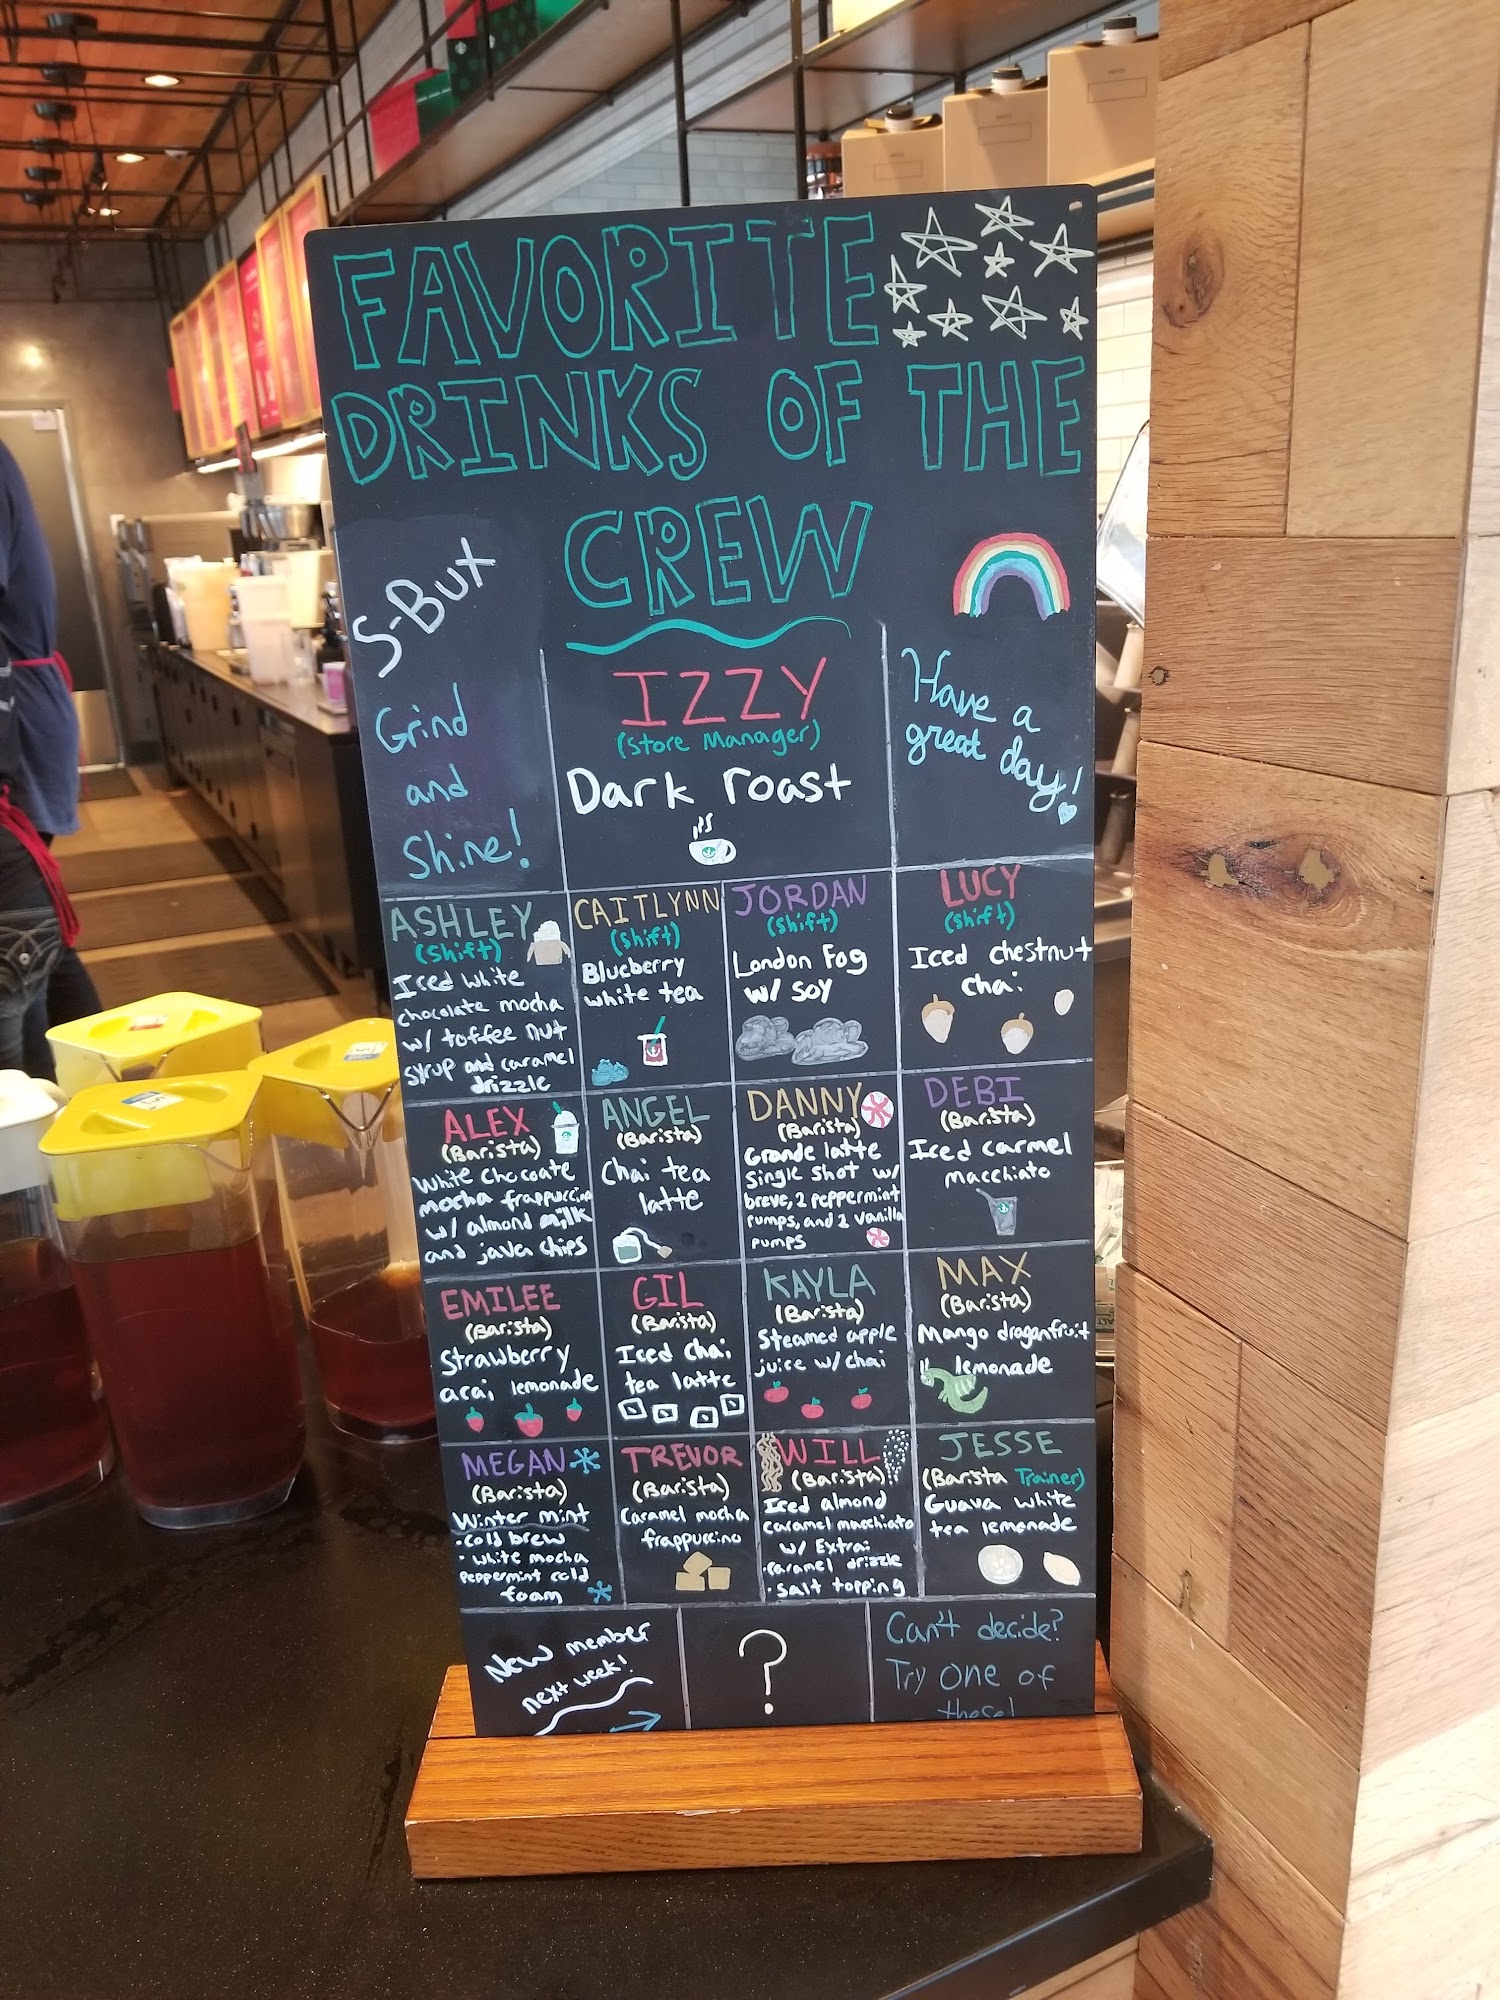 FAVORITE
DRINKS OF THE
CREW
S-Bux
Grind
and
Shine!
IZZY
(Store Manager)
Dark roast
Have a
great day!
ASHLEY
(Shift)
Iced white
chocolate mocha
w/ toffee nut
syrup and caramel
drizzle
CAITLYNN
(Shift)
Blueberry
white tea
JORDAN
(Shift)
London Fog
w/ soy
LUCY
(Shift)
Iced chestnut
chai
ALEX
(Barista)
White chocoate
mocha frappuccino
w/ almond milk
and java chips
ANGEL
(Barista)
Chai tea
latte
DANNY
(Barista)
Grande latte
Single shot w/
breve, 2 peppermint
pumps, and 2 vanilla
pumps
DEBI
(Barista)
Iced carmel
macchiato
EMILEE
(Barista)
Strawberry
acai lemonade
GIL
(Barista)
Iced chai
tea latte
KAYLA
(Barista)
Steamed apple
juice w/ chai
MAX
(Barista)
Mango dragonfruit
lemonade
MEGAN
(Barista)
Winter mint
• cold brew
• white mocha
peppermint cold
foam
TREVOR
(Barista)
Caramel mocha
frappuccino
WILL
(Barista)
Iced almond
caramel macchiato
w/ Extra:
• caramel drizzle
• salt topping
JESSE
(Barista Trainer)
Guava white
tea lemonade
New member
next week!
?
Can't decide?
Try one of
these!